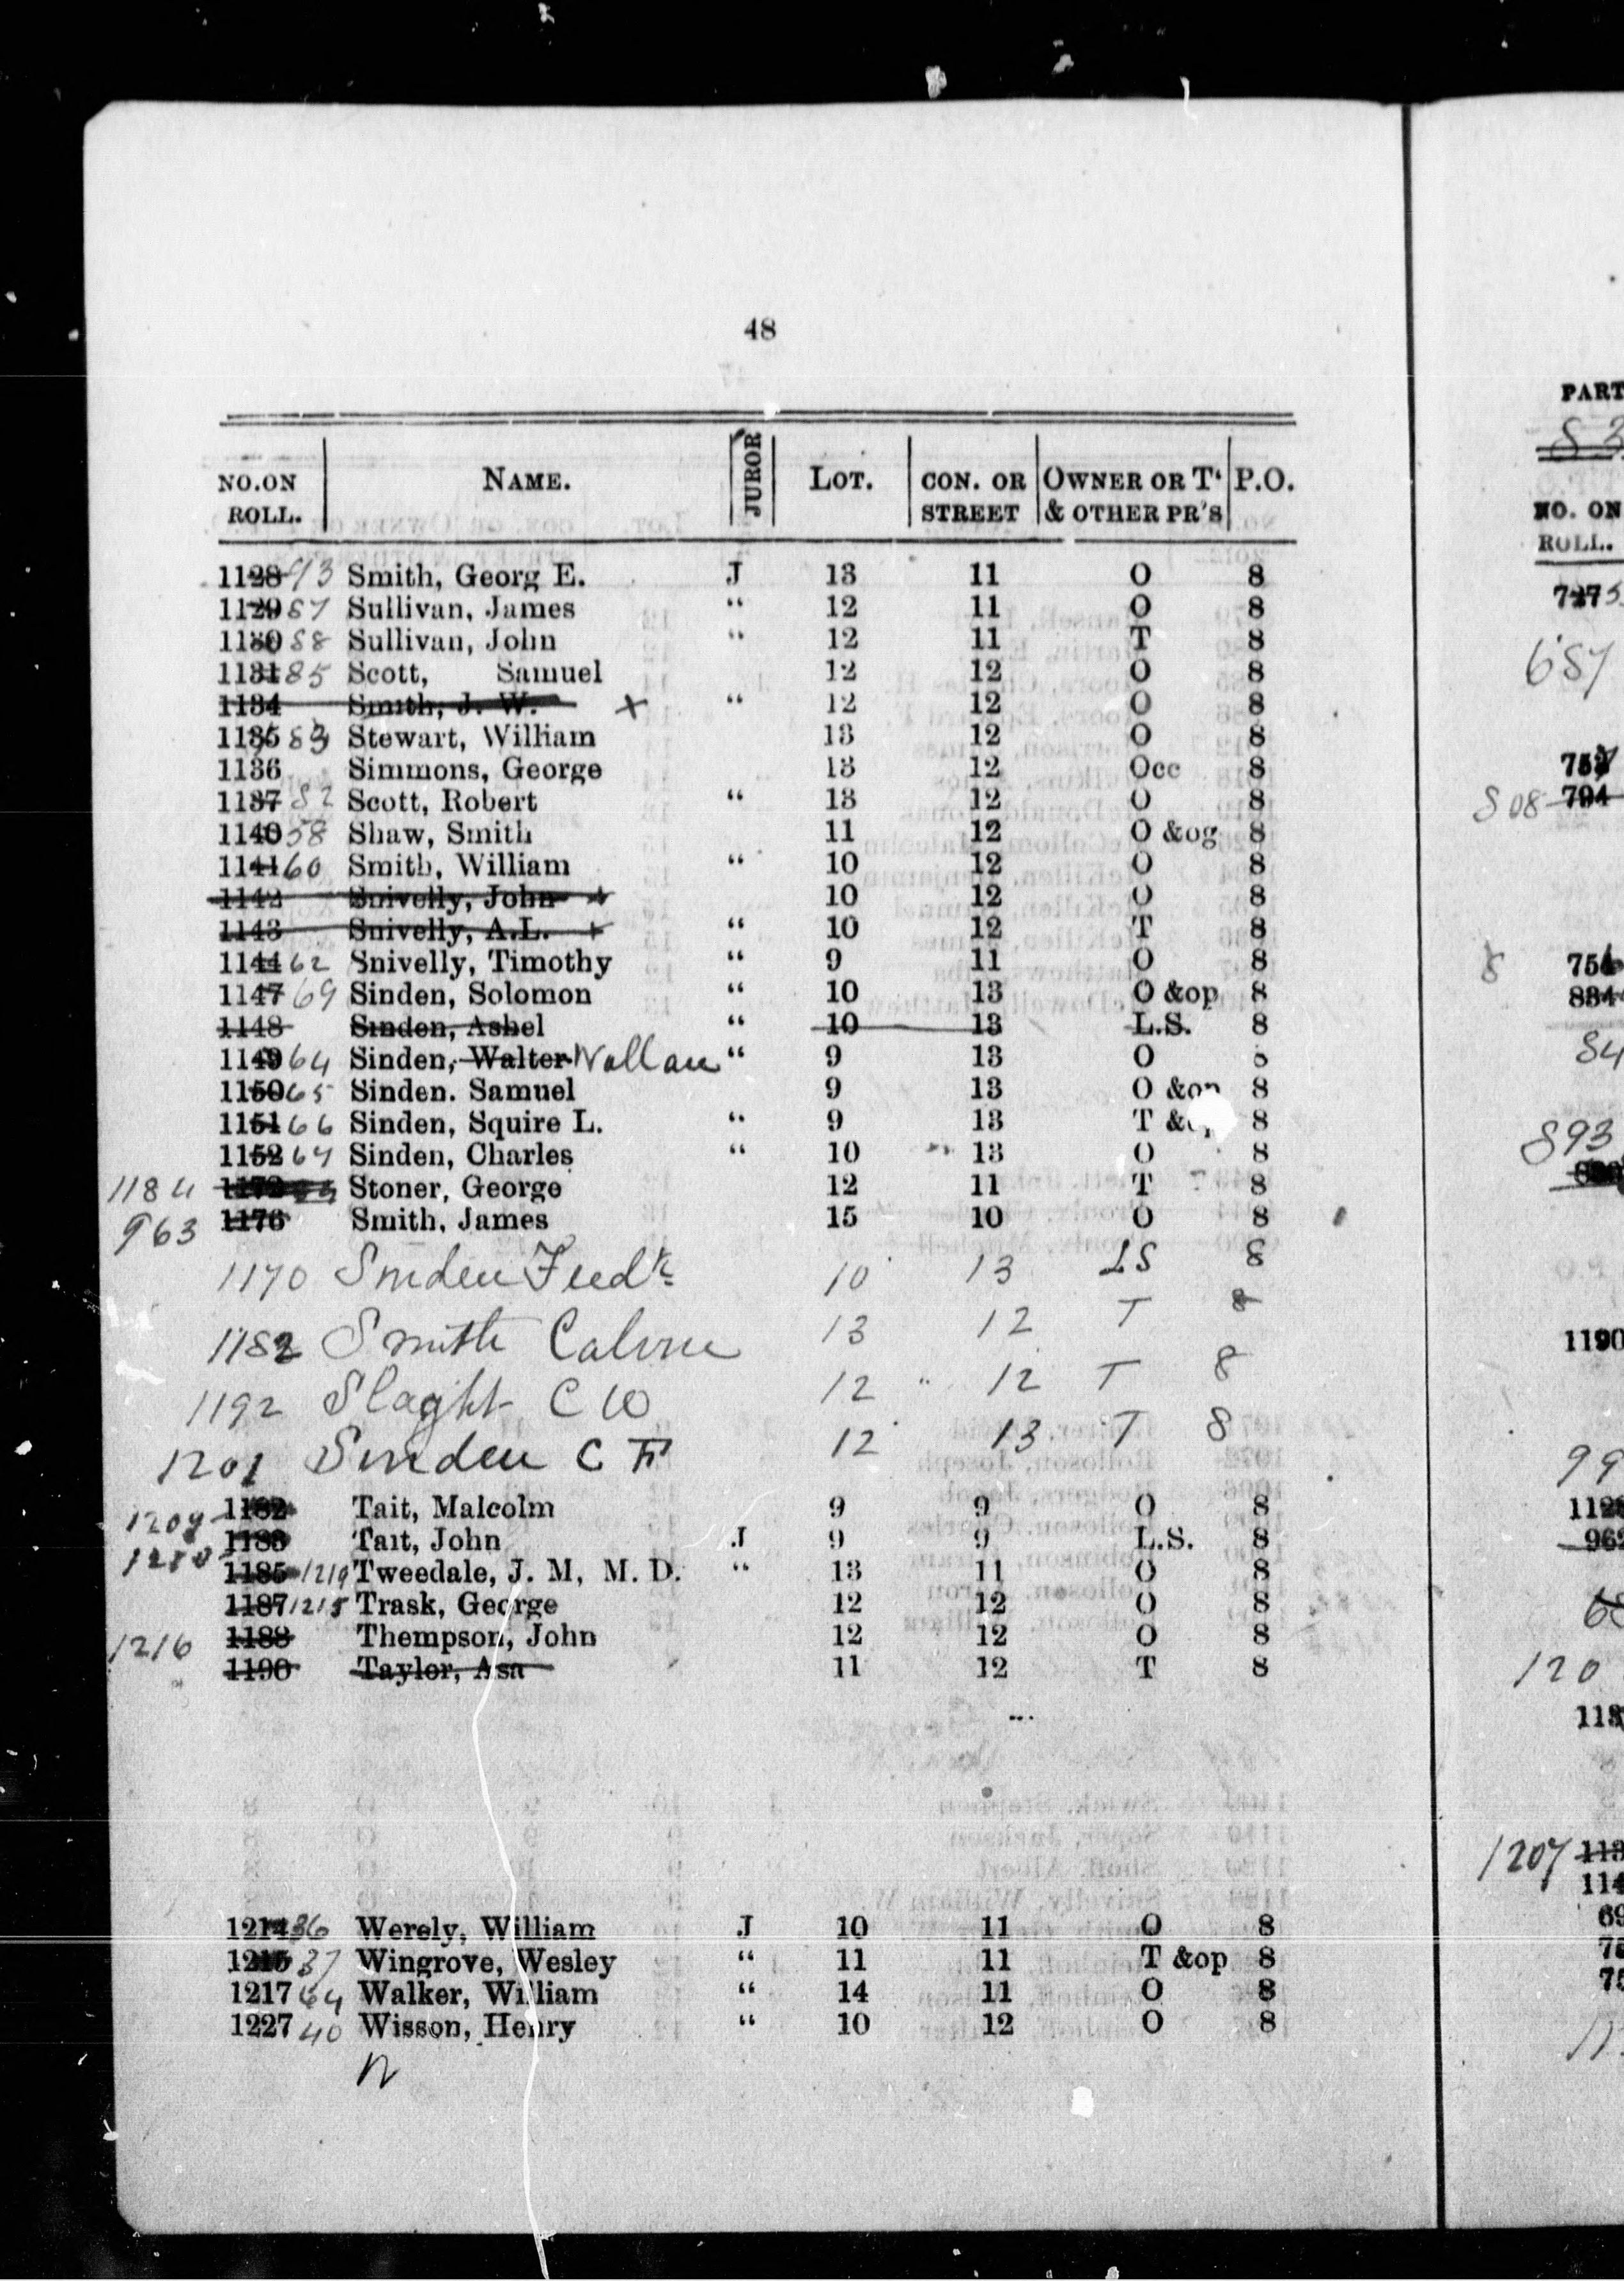 48
NO. ON ROLL. NAME. JUROR LOT. CON. OR STREET OWNER OR T' & OTHER PR'S P.O.
1128 93 Smith, Georg E. J 13 11 O 8
1129 87 Sullivan, James “ 12 11 O 8
1130 88 Sullivan, John “ 12 11 T 8
1131 85 Scott, Samuel 12 12 O 8
1134 Smith, J. W. x “ 12 12 O 8
1135 83 Stewart, William 13 12 O 8
1136 Simmons, George 13 12 Occ 8
1137 82 Scott, Robert “ 13 12 O 8
1140 58 Shaw, Smith 11 12 O &og 8
1141 60 Smith, William “ 10 12 O 8
1142 Snivelly, John + 10 12 O 8
1143 Snivelly, A.L. + “ 10 12 T 8
1144 62 Snivelly, Timothy “ 9 11 O 8
1147 69 Sinden, Solomon “ 10 13 O &op 8
1148 Sinden, Ashel “ 10 13 L.S. 8
1149 64 Sinden, Walter “ 9 13 O 8
1150 65 Sinden. Samuel 9 13 O &op 8
1151 66 Sinden, Squire L. “ 9 13 T 8
1152 67 Sinden, Charles “ 10 13 O 8
1184 Stoner, George 12 11 T 8
963 1176 Smith, James 15 10 O 8
1170 Sinden Fredk 10 13 LS 8
1182 Smith Calvin 13 12 T 8
1192 Slaght C W 12 " 12 T 8
1201 Sinden C F 12 13 T 8
1209 1182 Tait, Malcolm 9 9 O 8
1210 1183 Tait, John J 9 9 L.S. 8
1185 1219 Tweedale, J. M, M. D. “ 13 11 O 8
1187 1215 Trask, George 12 12 O 8
1216 1188 Thempson, John 12 12 O 8
1190 Taylor, Asa 11 12 T 8
1214 36 Werely, William J 10 11 O 8
1215 37 Wingrove, Wesley “ 11 11 T &op 8
1217 64 Walker, William “ 14 11 O 8
1227 40 Wisson, Henry “ 10 12 O 8
PART
NO. ON
ROLL.
727 5
687
808 794
8 756
834
84
893
1190
99
962
120
1207
114